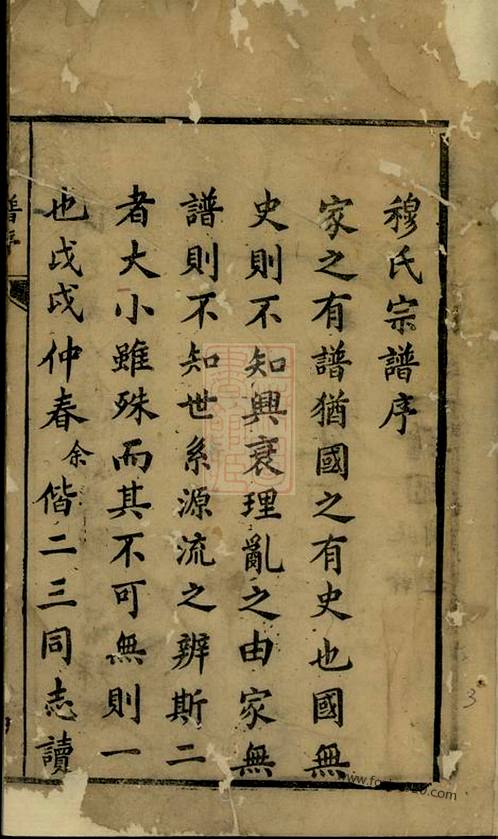 穆氏宗譜序
家之有譜猶國之有史也國無
史則不知興衰理亂之由家無
譜則不知世系源流之辨斯二
者大小雖殊而其不可無則一
也戊戌仲春余偕二三同志讀
譜序
3